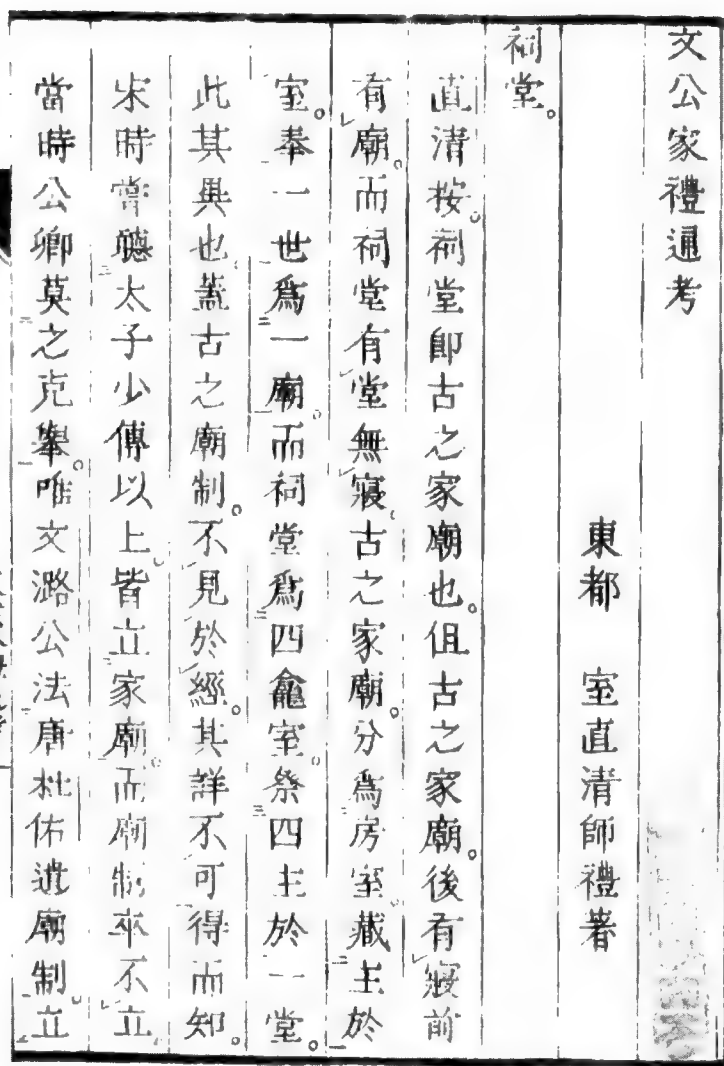 文公家禮通考
東都　室直清師禮著
祠堂。
直清按。祠堂卽古之家廟也。但古之家廟。後有寢前
有廟。而祠堂有堂無寢。古之家廟。分爲房室。藏主於
室。奉一世爲一廟。而祠堂爲四龕室。祭四主於一堂。
此其異也。蓋古之廟制。不見於經。其詳不可得而知。
宋時嘗聽太子少傅以上。皆立家廟。而廟制卒不立。
當時公卿莫之克舉。唯文潞公法唐杜佑遺廟制。立